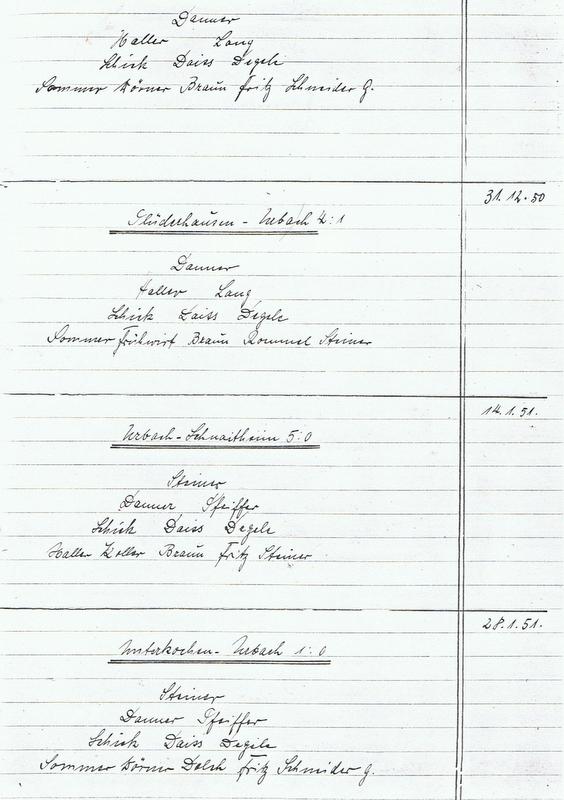 Danner
Haller Lang
Schiek Daiss Degele
Sommer Körner Braun Fritz Schneider G.
31.12.50
Plüderhausen - Urbach 4:1
Danner
Haller Lang
Schiek Daiss Degele
Sommer Frühwirt Braun Rommel Steiner
14.1.51.
Urbach - Schnaitheim 5:0
Steiner
Danner Pfeiffer
Schiek Daiss Degele
Haller Koller Braun Fritz Steiner
28.1.51.
Unterkochen - Urbach 1:0
Steiner
Danner Pfeiffer
Schiek Daiss Degele
Sommer Körner Dolch Fritz Schneider G.